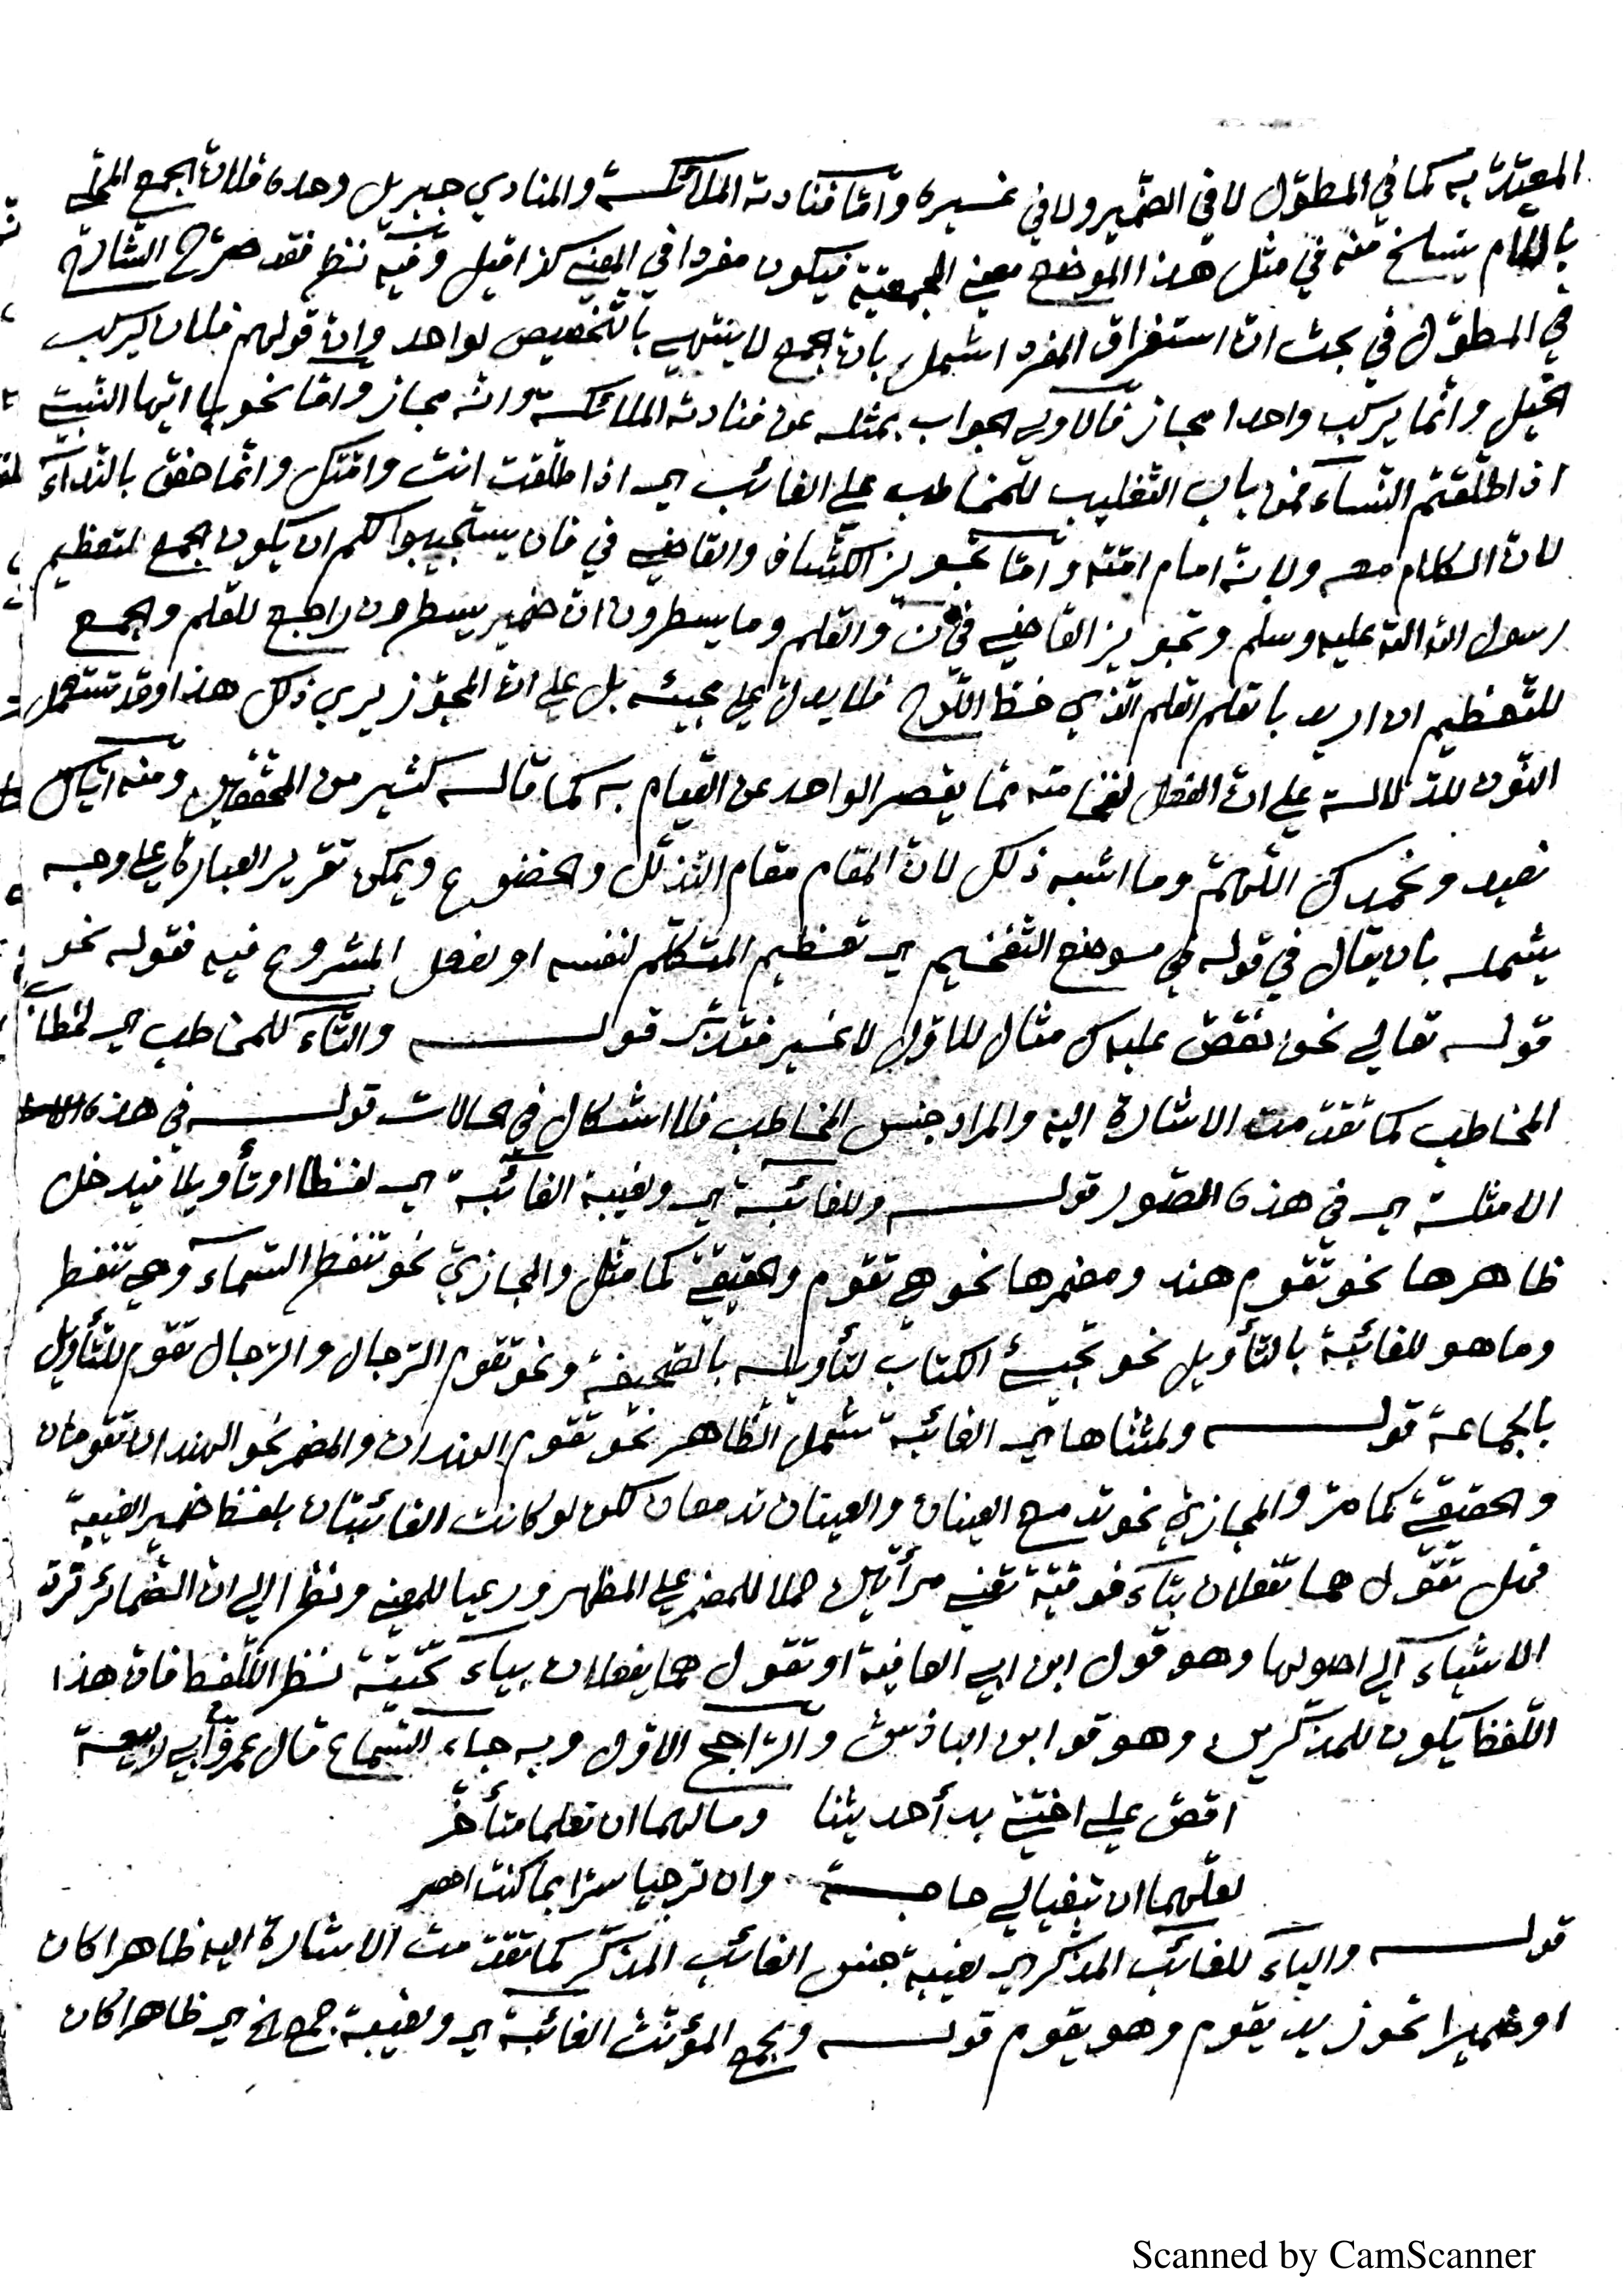 المعتدّ به كما في المطوّل لا في الضمير ولا في غسيره وامّا فنادته الملائكسة والمنادي جبريل وحده فلانّ الجمع المحلّى
باللام ينسلخ منه في مثل هذا الموضع معنى الجمعيّة فيكون مفردا في المعنى كذا قيل وفيه نظر فقد صرّح الشّارح
في المطوّل في بحث انّ استغراق المفرد اشمل بانّ الجمع لا ينتهي بالتّخصيص لواحد وانّ قولهم فلان يركب
الخيل وانّما يركب واحدا مجاز فالاولى الجواب بمثله عن فنادته الملائكسة وانّه مجاز وامّا نحو يا ايّها النّبيّ
اذا طلّقتم النّساء فمن باب التّغليب للمخاطب على الغائب اي اذا طلّقت انت وامّتك وانّما خصّ بالنّداء
لانّ الكلام معه ولانّه امام امّته وامّا تجويز الكشّاف والقاضي في فان يستجيبوا لكم ان يكون الجمع لتعظيم
رسول الله الله عليه وسلم وتجويز القاضي في ن والقلم وما يسطرون انّ ضمير يسطرون راجع للقلم والجمع
للتّعظيم ان اريد بالقلم القلم الّذي خطّ اللّوح فلا يدلّ على مجيئه بل على انّ المجوّز يري ذلك هذا وقد تستعمل
النّون للدّلالسة على انّ الفعل لفخامته ممّا يقصر الواحد عن القيام به كما قالسه كثير من المحقّقين ومنه ايّاك
نعبد ونحمدك اللّهمّ وما اشبه ذلك لانّ المقام مقام التّذلّل والخضوع ويمكن تقرير العبارة على وجه
يشمله بان يقال في قوله في موضع التّفخيم اي تعظيم المتكلّم لنفسه او لفعل المشروع فيه فقوله نحو
قوله تعالي نحن نقصّ عليك مثال للاوّل لا غسير فتدبّر قولــه والتّاء للمخاطب اي لخطاب
المخاطب كما تقدّمت الاشارة اليه والمراد جنس المخاطب فلا اشكال في الحالات قولــه في هذه
الامثلة اي في هذه الصّور قولــه وللغائبة اي ولغيبة الغائبة اي لفظا او تأويلا فيدخل
ظاهرها نحو تقوم هند ومضمرها نحو هي تقوم والحقيقيّ كما مثّل والمجازيّ نحو تنفطر السّماء وهي تنفطر
وما هو للغائبة بالتّأويل نحو تجيئ الكتاب لتأويله بالصّحيفة ونحو تقوم الرّجال والرّجال تقوم للتّأويل
بالجماعة قولــه ولمثنّاها اي الغائبة تشمل الظّاهر نحو تقوم الهندان والمضمر نحو الهندان تقومان
والحقيقيّ كما مرّ والمجازيّ نحو تدمع العينان والعينان تدمعان لكن لو كانت الغائبتان بلفظ ضمير الغيبة
فهل تقول هما تفعلان بتاء فوقيّة تعني مرأتين حملا للمضمر على المظهر ورعيا للمعني ونظرا الى انّ الضّمائر تردّ
الاشياء الي اصولها وهو قول ابن ابي العافية او تقول هما يفعلان بياء تحتيّة لنظر اللّفظ فانّ هذا
اللّفظ يكون للمذكّرين وهو قو ابن الباذش والرّاجح الاوّل وبه جاء السّماع قال عمرو ابي ربيعة
اقصّ على اختيّ بدأ حديثنا ومالهما ان تعلما متأخّر
لعلّهما ان تبغيا لي حاجــة وان ترحبا سرّا بما كنت احصر
قولــه والياء للغائب المذكّر اي لغيبة جنس الغائب المذكّر كما تقدّمت الاشارة اليه ظاهرا كان
او ضميرا نحو زيد يقوم وهو يقوم قولــه ولجمع المؤنّث الغائبة اي ولغيبة جمع الخ اي ظاهرا كان
Scanned by CamScanner